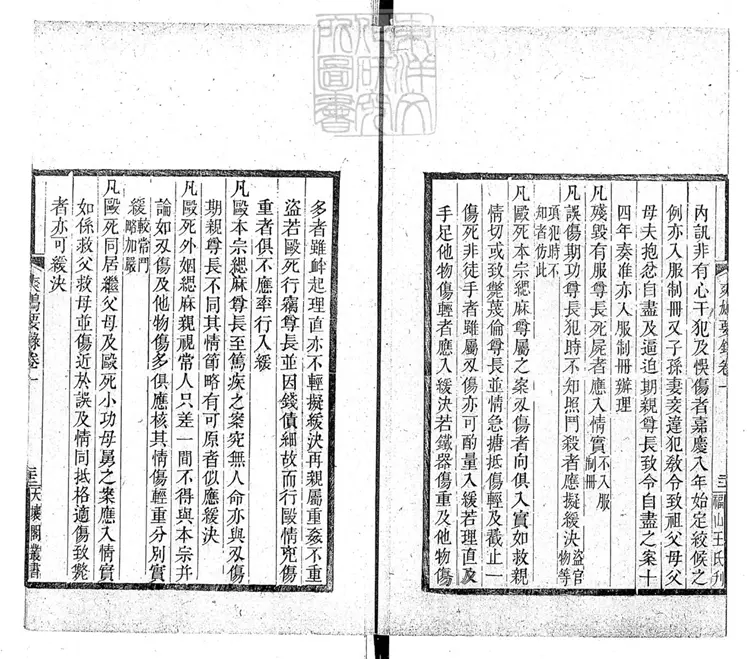 內訊非有心干犯及悞傷者嘉慶八年始定絞候之
例亦入服制冊又子孫妻妾違犯敎令致祖父母父
母夫抱忿自盡及逼迫期親尊長致令自盡之案十
四年奏准亦入服制冊辦理
凡殘毀有服尊長死屍者應入情實不入服
制冊
凡誤傷期功尊長犯時不知照鬥殺者應擬緩決盜官
物等
項犯時不
知者仿此
凡毆死本宗緦麻尊屬之案刃傷者向俱入實如救親
情切或致斃蔑倫尊長並情急搪抵傷輕及截止一
傷死非徒手者雖屬刃傷亦可酌量入緩若理直及
手足他物傷輕者應入緩決若鐵器傷重及他物傷
要錄卷一
福山王氏刊
多者雖衅起理直亦不輕擬緩決再親屬重姦不重
盜若毆死行竊尊長並因錢債細故而行毆情兇傷
重者俱不應率行入緩
凡毆本宗緦麻尊長至篤疾之案究無人命亦與刃傷
期親尊長不同其情節略有可原者似應緩決
凡毆死外姻緦麻親視常人只差一間不得與本宗并
論如刃傷及他物傷多俱應核其情傷輕重分別實
緩較常鬥
略加嚴
凡毆死同居繼父母及毆死小功母舅之案應入情實
如係救父救母並傷近於誤及情同抵格適傷致斃
者亦可緩決
要錄卷一
天壤閣叢書
東洋文化研究所圖書